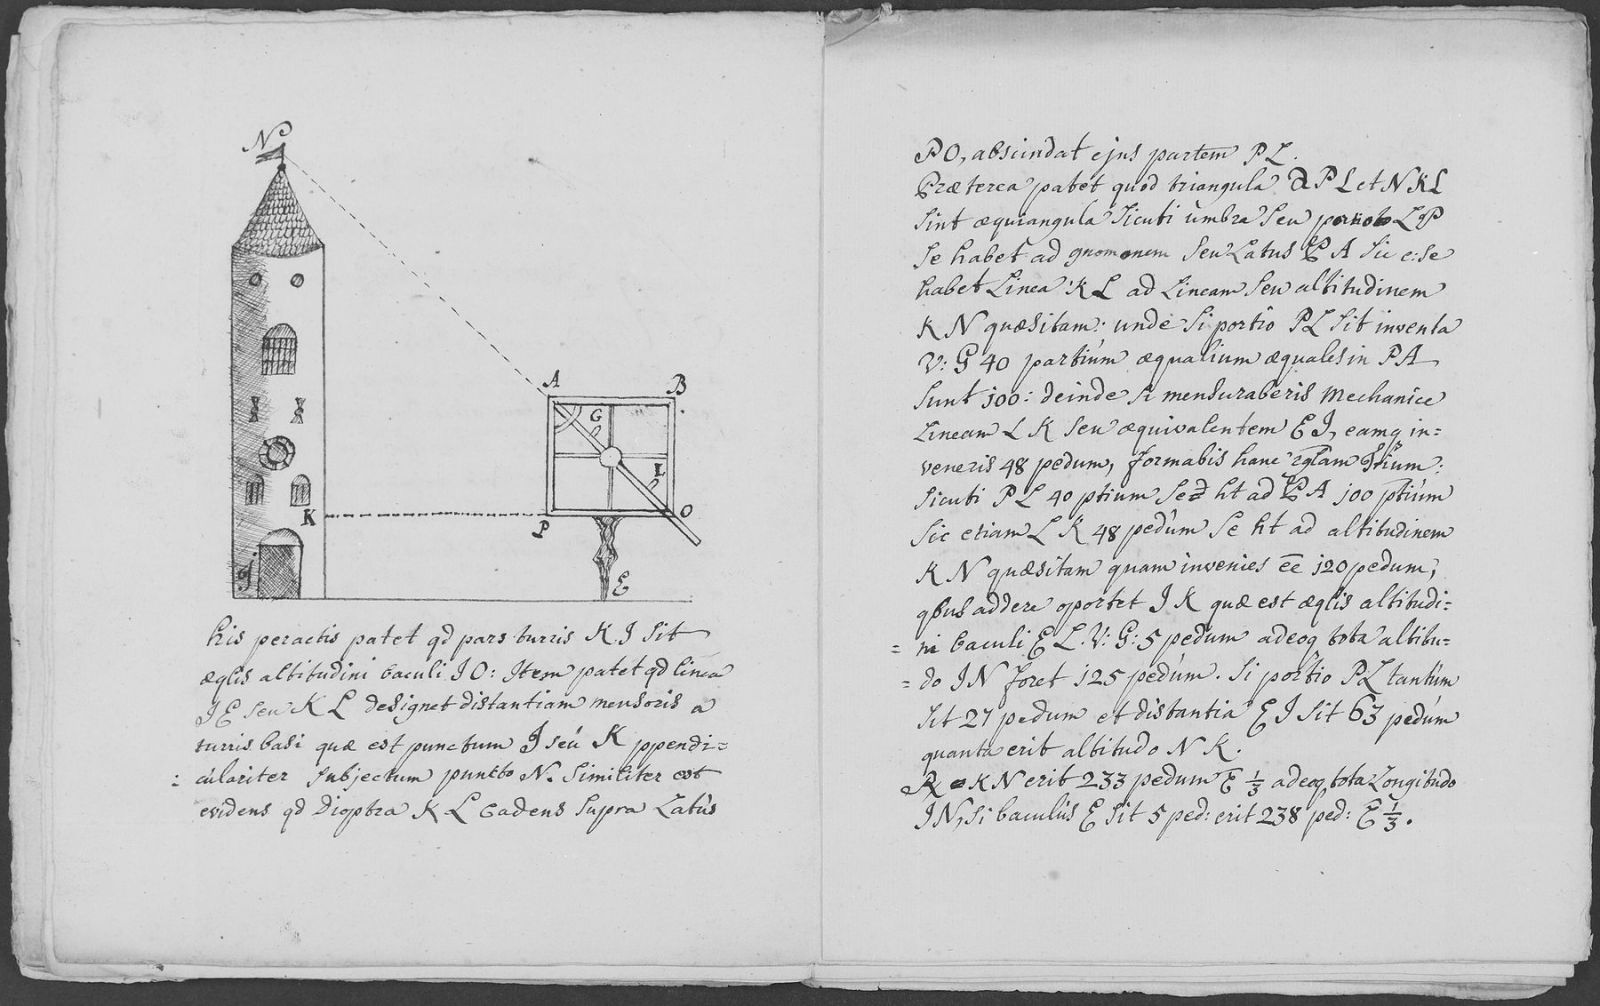 N
A
B
G
L
K
P
O
I
E
his peractis patet qd pars turris K J sit
æqlis altitudini baculi J O: Item patet qd linea
J E seu K L designet distantiam mensoris a
turris basi quæ est punctum J séu K ppendi=
: culariter subjectum puncto N. Similiter est
evidens qd Dioptra K L cadens supra Latus
PO, abscindat ejus partem PL.
Præterea patet quod triangula A P L et N K L
sint æquiangula sicuti umbra seu portio L P
se habet ad gnomonem seu Latus P A sic e: se
habet Linea K L ad Lineam seu altitudinem
K N quæsitam: unde si portio PL sit inventa
V: G 40 partium æqualium æquales in PA
sunt 100: deinde si mensuraberis Mechanice
Lineam L K seu æquivalentem E J, eamq in=
veneris 48 pedum, formabis hanc rglam Trium:
Sicuti P L 40 ptium se ht ad P A 100 ptium
Sic etiam L K 48 pedum se ht ad altitudinem
K N quæsitam quam invenies ee 120 pedum;
qbus addere oportet J K quæ est æqlis altitudi=
= ni baculi E L. V: G: 5 pedum adeoq tota altitu=
= do J N foret 125 pedum. Si portio PL tantum
sit 27 pedum et distantia E J sit 63 pedum
quanta erit altitudo N K.
R K N erit 233 pedum E 1/3 adeoq tota Longitudo
J N, si baculus E sit 5 ped: erit 238 ped: E 1/3.